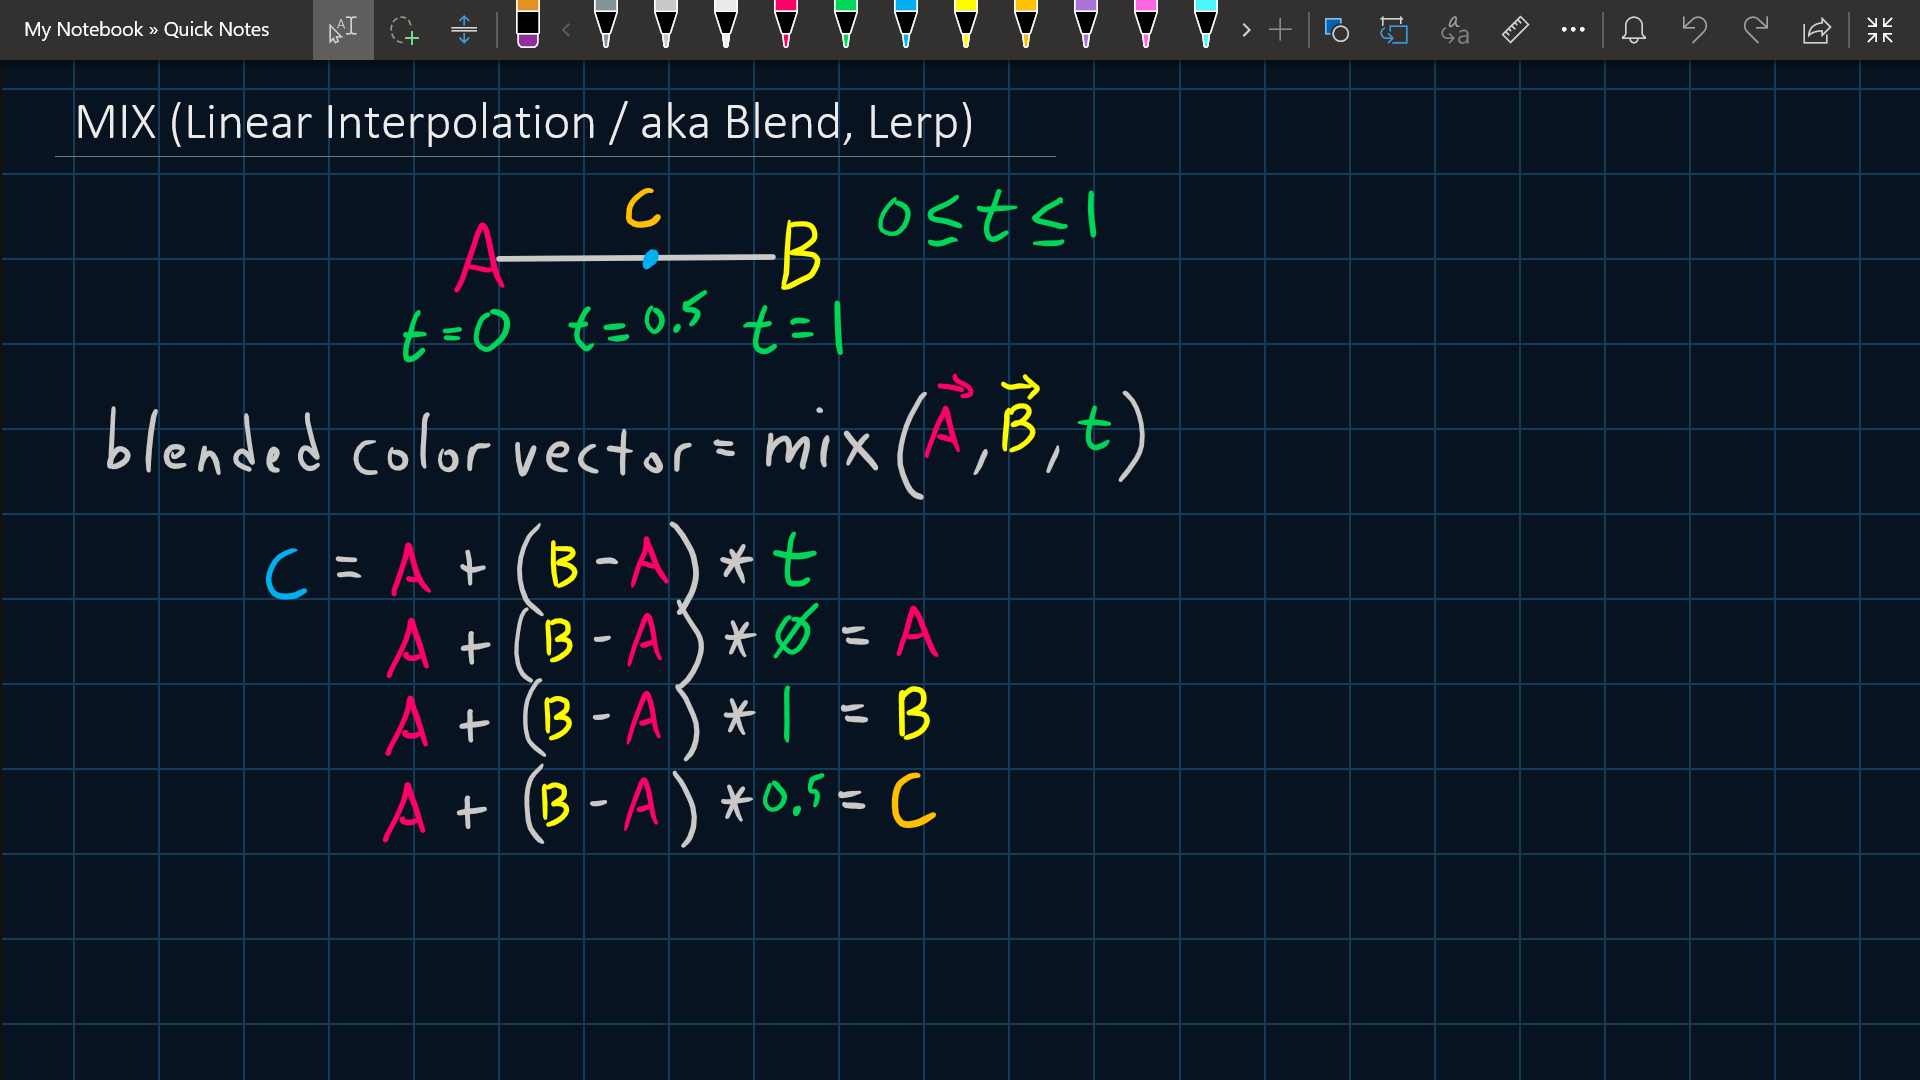 My Notebook » Quick Notes
MIX (Linear Interpolation / aka Blend, Lerp)
C
A B 0 ≤ t ≤ 1
t = 0 t = 0.5 t = 1
blended color vector = mix (A⃗, B⃗, t)
C = A + (B - A) * t
A + (B - A) * 0 = A
A + (B - A) * 1 = B
A + (B - A) * 0.5 = C